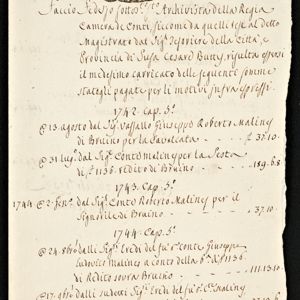 Faccio fede io sottos.to Archivista della Regia
Camera de Conti, siccome da quelli resi al detto
Magistrato dal Sig.r Tesoriere della Città, e
Provincia di Susa Cesare Butty, risulta essersi
il medesimo carricato delle seguenti somme
stategli pagate per li motivi infra espressi
1742. Cap. 5.o
@ 13. agosto dal Sig. Vassallo Giuseppe Roberto Maliny
di Bruino per la Cavalcata £ 37.10
@ 31. lug. dal Sig. Conte Maliny per la
di £ 1136. reddito di Bruino 189.6.8
1743. Cap. 5.o
1744 @ 2. dal Sig. Conte Roberto Maliney per il
di Bruino 37.10
1744. Cap. 5.o
@ 24. 8bre dalli Sig.ri Eredi del fu S. Conte Giuseppe
Ludovico Malines a conto della £ 1136.
di Reddito sovra Bruino 111.13.10
@ 17. 9bre dalli sudetti Sig.ri Eredi del fu S. Conte Maliny